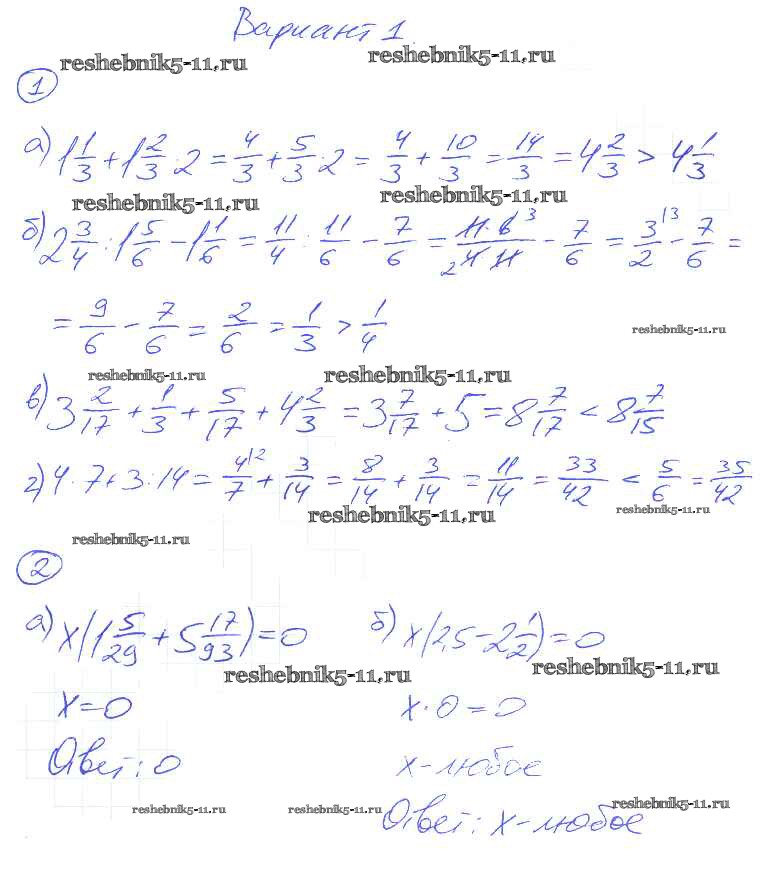 Вариант 1
reshebnik5-11.ru reshebnik5-11.ru
1
а) 1 1/3 + 1 2/3 · 2 = 4/3 + 5/3 · 2 = 4/3 + 10/3 = 14/3 = 4 2/3 > 4 1/3
reshebnik5-11.ru reshebnik5-11.ru
б) 2 3/4 : 1 5/6 - 1 1/6 = 11/4 : 11/6 - 7/6 = 11·6 3/2 4·11 - 7/6 = 3/2 - 7/6 =
= 9/6 - 7/6 = 2/6 = 1/3 > 1/4
reshebnik5-11.ru
reshebnik5-11.ru reshebnik5-11.ru
в) 3 2/17 + 1/3 + 5/17 + 4 2/3 = 3 7/17 + 5 = 8 7/17 < 8 7/15
г) 4 · 7 + 3 : 14 = 4/7 + 3/14 = 8/14 + 3/14 = 11/14 = 33/42 < 5/6 = 35/42
reshebnik5-11.ru reshebnik5-11.ru
reshebnik5-11.ru
2
а) x(1 5/29 + 5 17/93) = 0 б) x(2,5 - 2 1/2) = 0
reshebnik5-11.ru reshebnik5-11.ru
x = 0 x · 0 = 0
Ответ: 0 x - любое
reshebnik5-11.ru reshebnik5-11.ru reshebnik5-11.ru
Ответ: x - любое